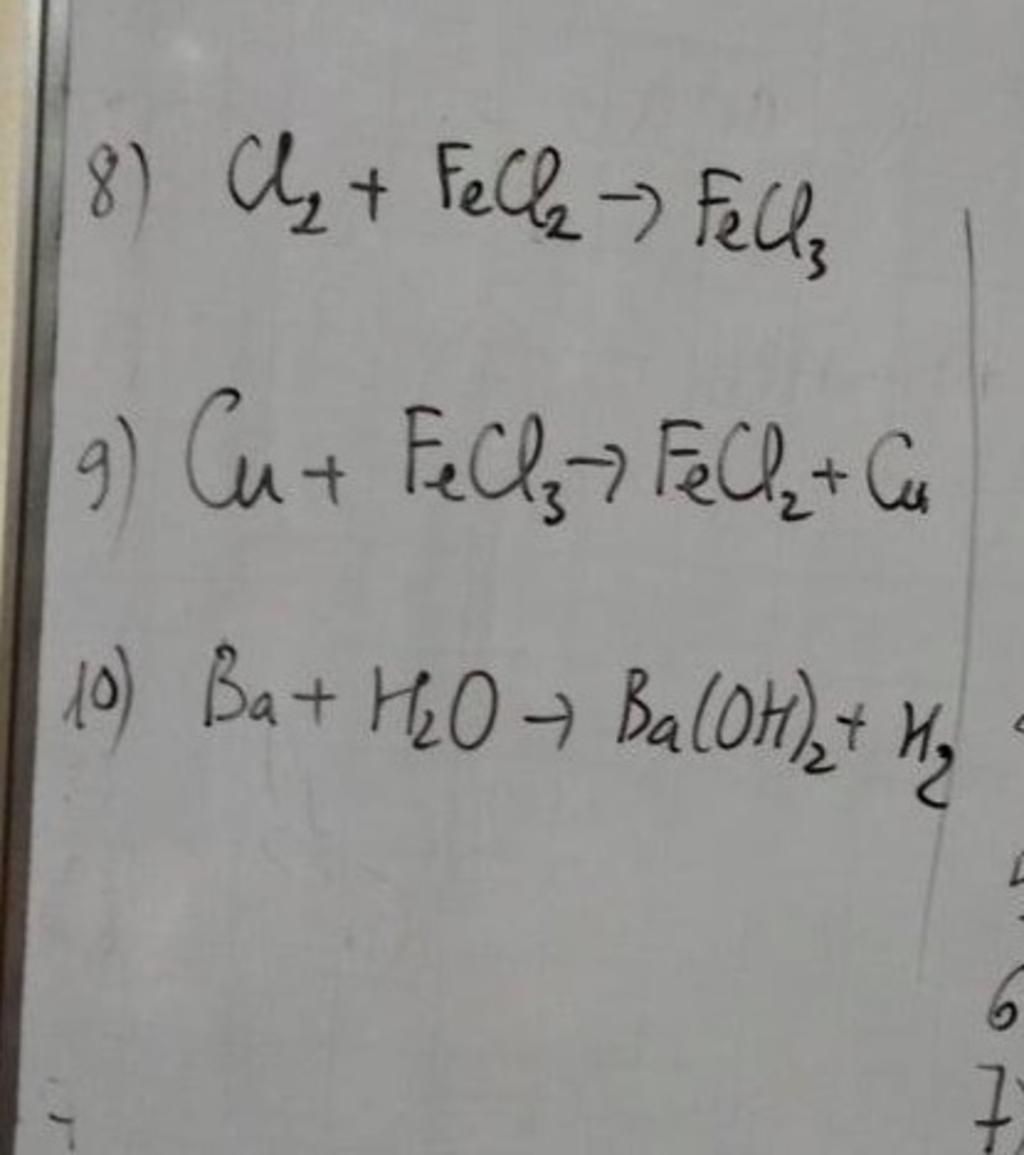 8) Cl₂ + FeCl₂ → FeCl₃
9) Cu + FeCl₃ → FeCl₂ + Cu
10) Ba + H₂O → Ba(OH)₂ + H₂
6
7)